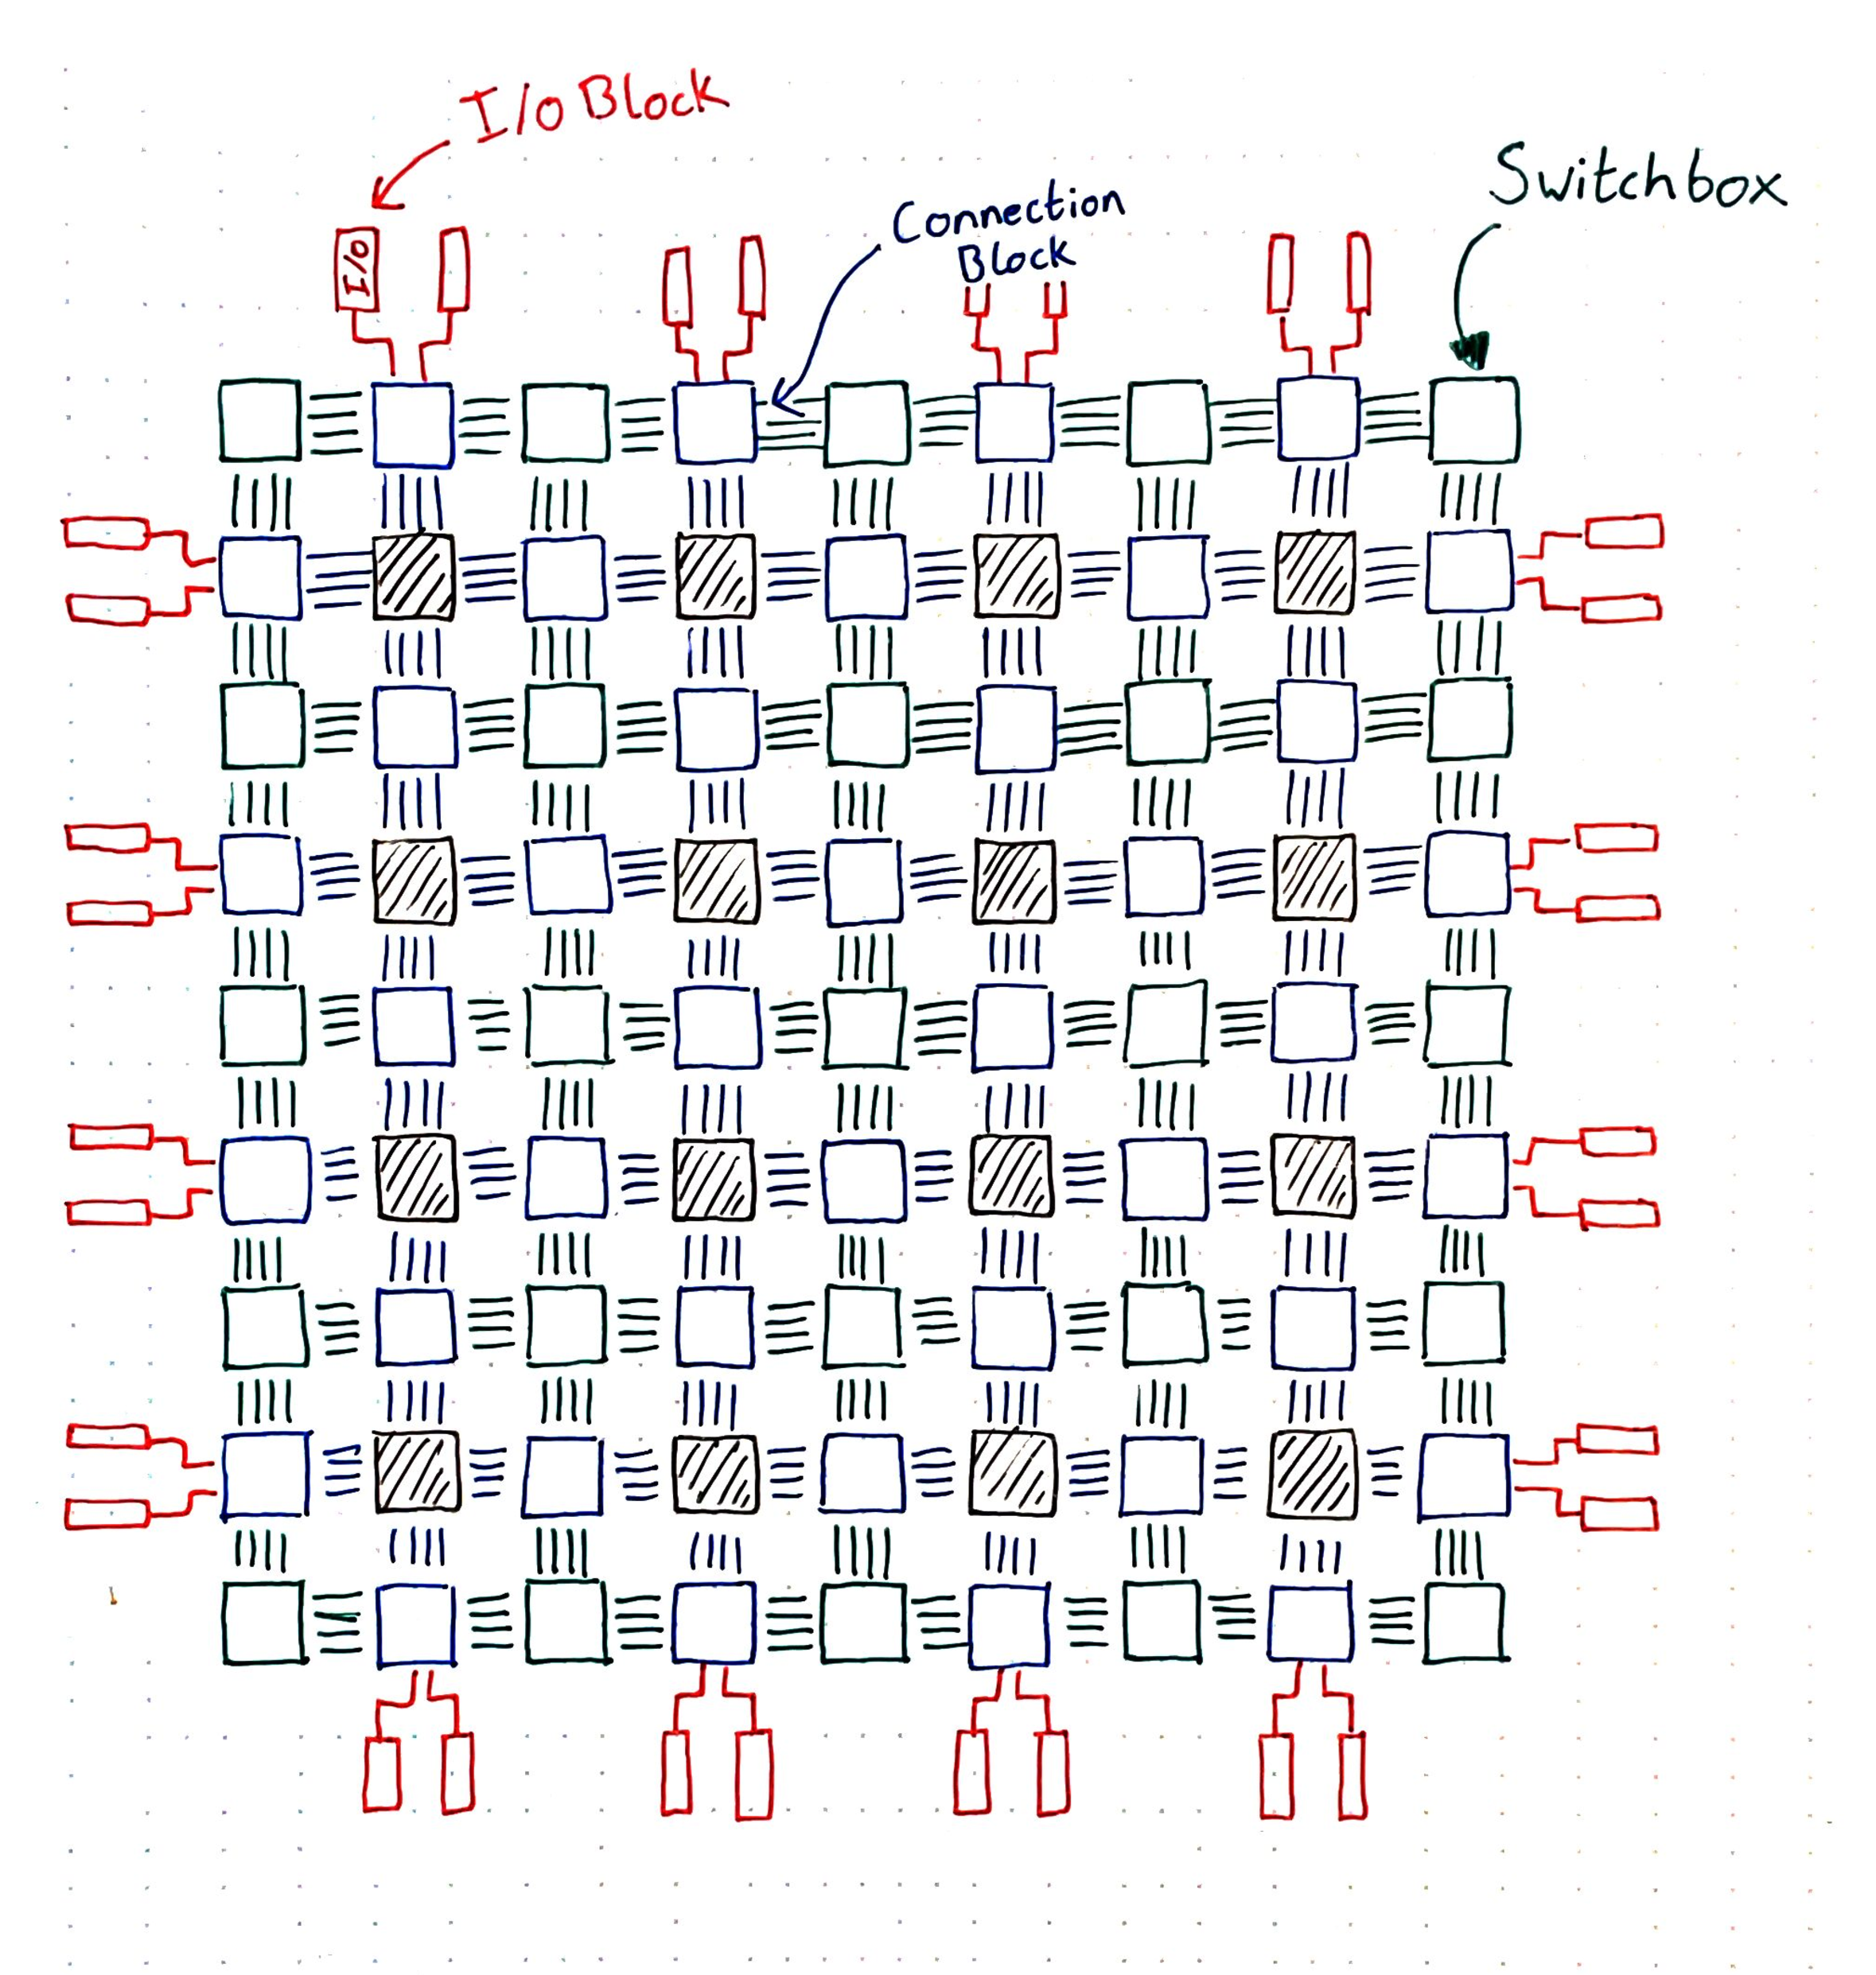 I/O Block
Switchbox
Connection
Block
I/O